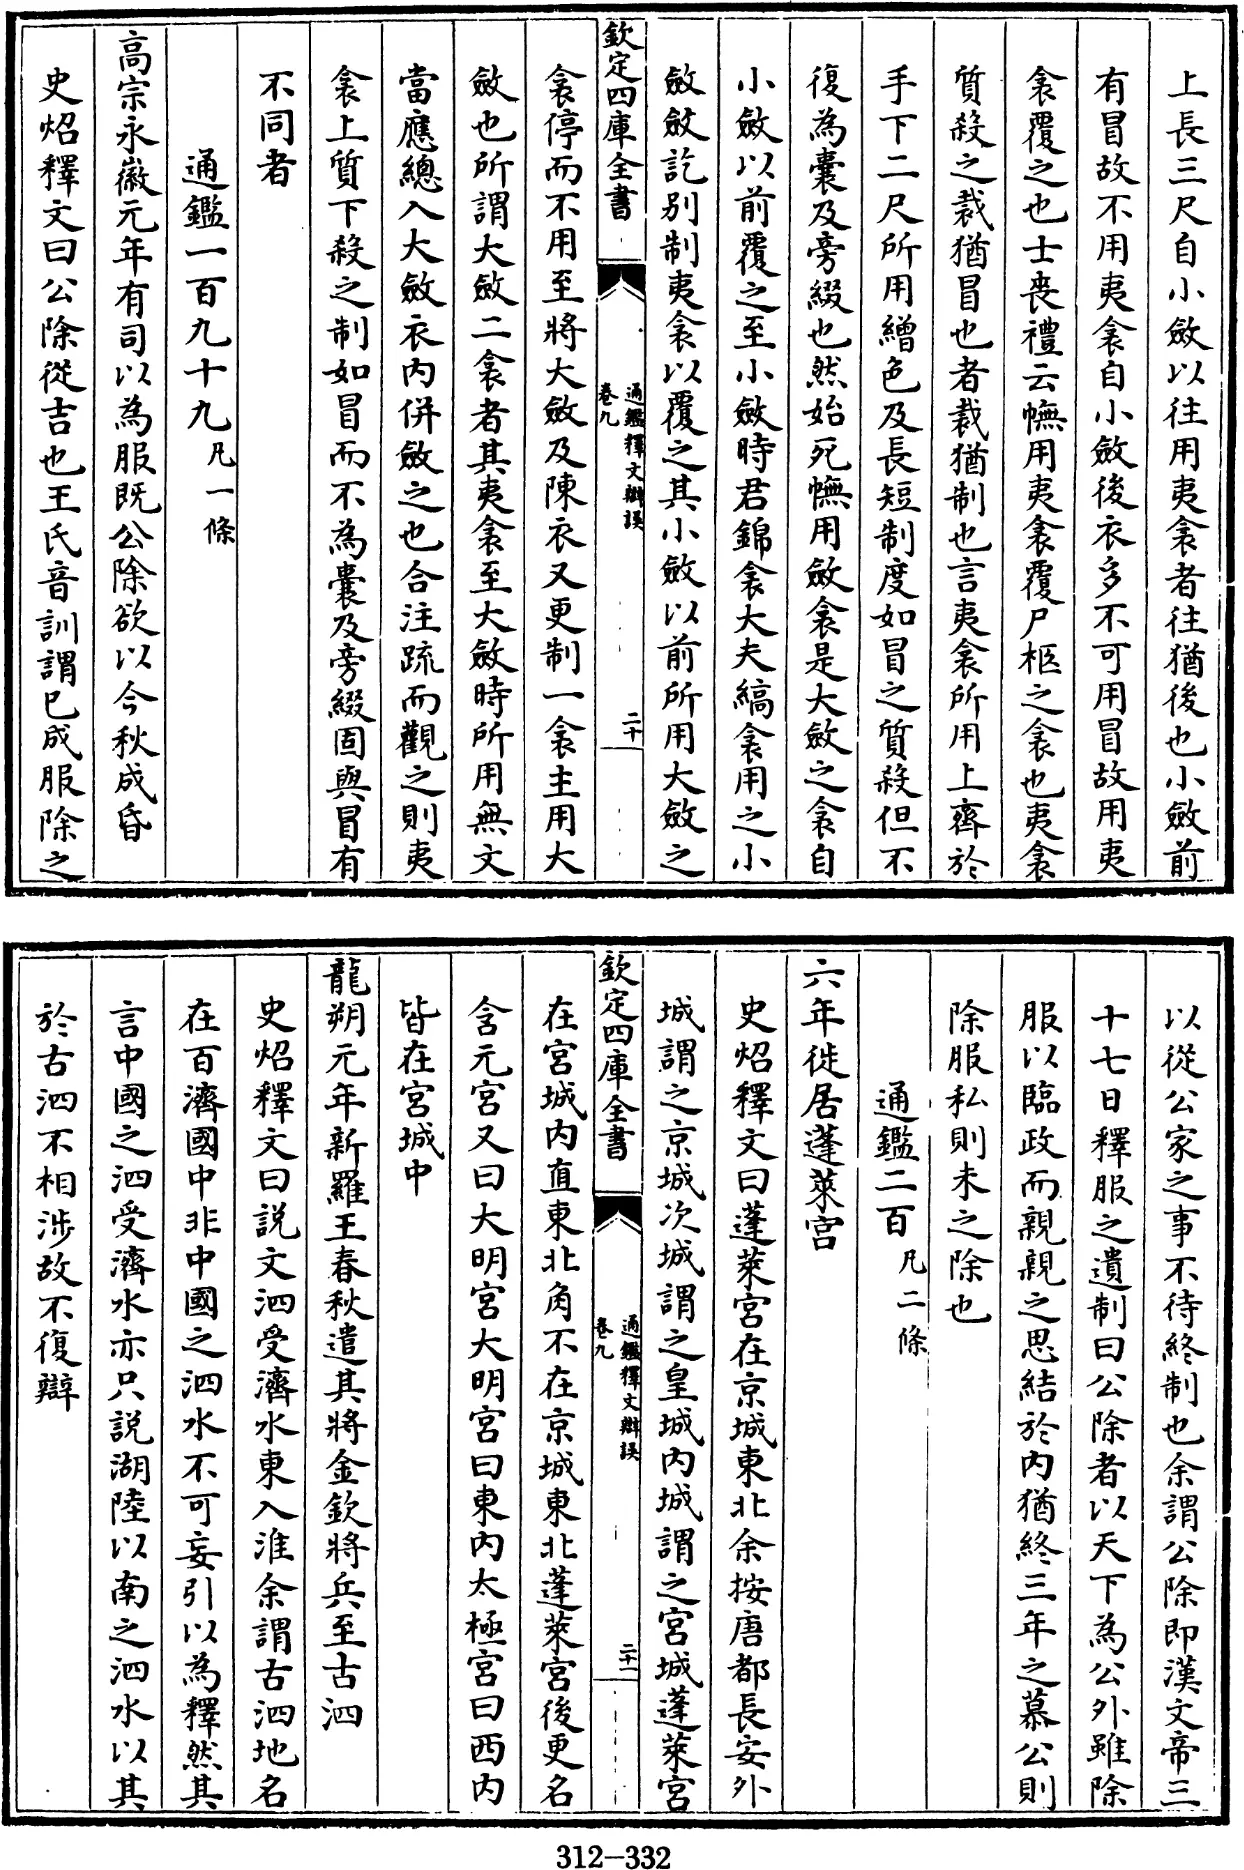 上長三尺自小斂以往用夷衾者往猶後也小斂前
有冒故不用夷衾自小斂後衣多不可用冒故用夷
衾覆之也士喪禮云幠用夷衾覆尸柩之衾也夷衾
質殺之裁猶冒也者裁猶制也言夷衾所用上齊於
手下二尺所用繒色及長短制度如冒之質殺但不
復為囊及旁綴也然始死幠用斂衾是大斂之衾自
小斂以前覆之至小斂時君錦衾大夫縞衾用之小
斂斂訖別制夷衾以覆之其小斂以前所用大斂之
欽定四庫全書
通鑑釋文辯誤
卷九
二十
衾停而不用至將大斂及陳衣又更制一衾主用大
斂也所謂大斂二衾者其夷衾至大斂時所用無文
當應總入大斂衣內併斂之也合注疏而觀之則夷
衾上質下殺之制如冒而不為囊及旁綴固與冒有
不同者
通鑑一百九十九凡一條
高宗永徽元年有司以為服既公除欲以今秋成昏
史炤釋文曰公除從吉也王氏音訓謂已成服除之
以從公家之事不待終制也余謂公除即漢文帝三
十七日釋服之遺制曰公除者以天下為公外雖除
服以臨政而親親之思結於內猶終三年之慕公則
除服私則未之除也
通鑑二百凡二條
六年徙居蓬萊宮
史炤釋文曰蓬萊宮在京城東北余按唐都長安外
城謂之京城次城謂之皇城內城謂之宮城蓬萊宮
欽定四庫全書
通鑑釋文辯誤
卷九
二十一
在宮城內直東北角不在京城東北蓬萊宮後更名
含元宮又曰大明宮大明宮曰東內太極宮曰西內
皆在宮城中
龍朔元年新羅王春秋遣其將金欽將兵至古泗
史炤釋文曰說文泗受濟水東入淮余謂古泗地名
在百濟國中非中國之泗水不可妄引以為釋然其
言中國之泗受濟水亦只說湖陸以南之泗水以其
於古泗不相涉故不復辯
312-332